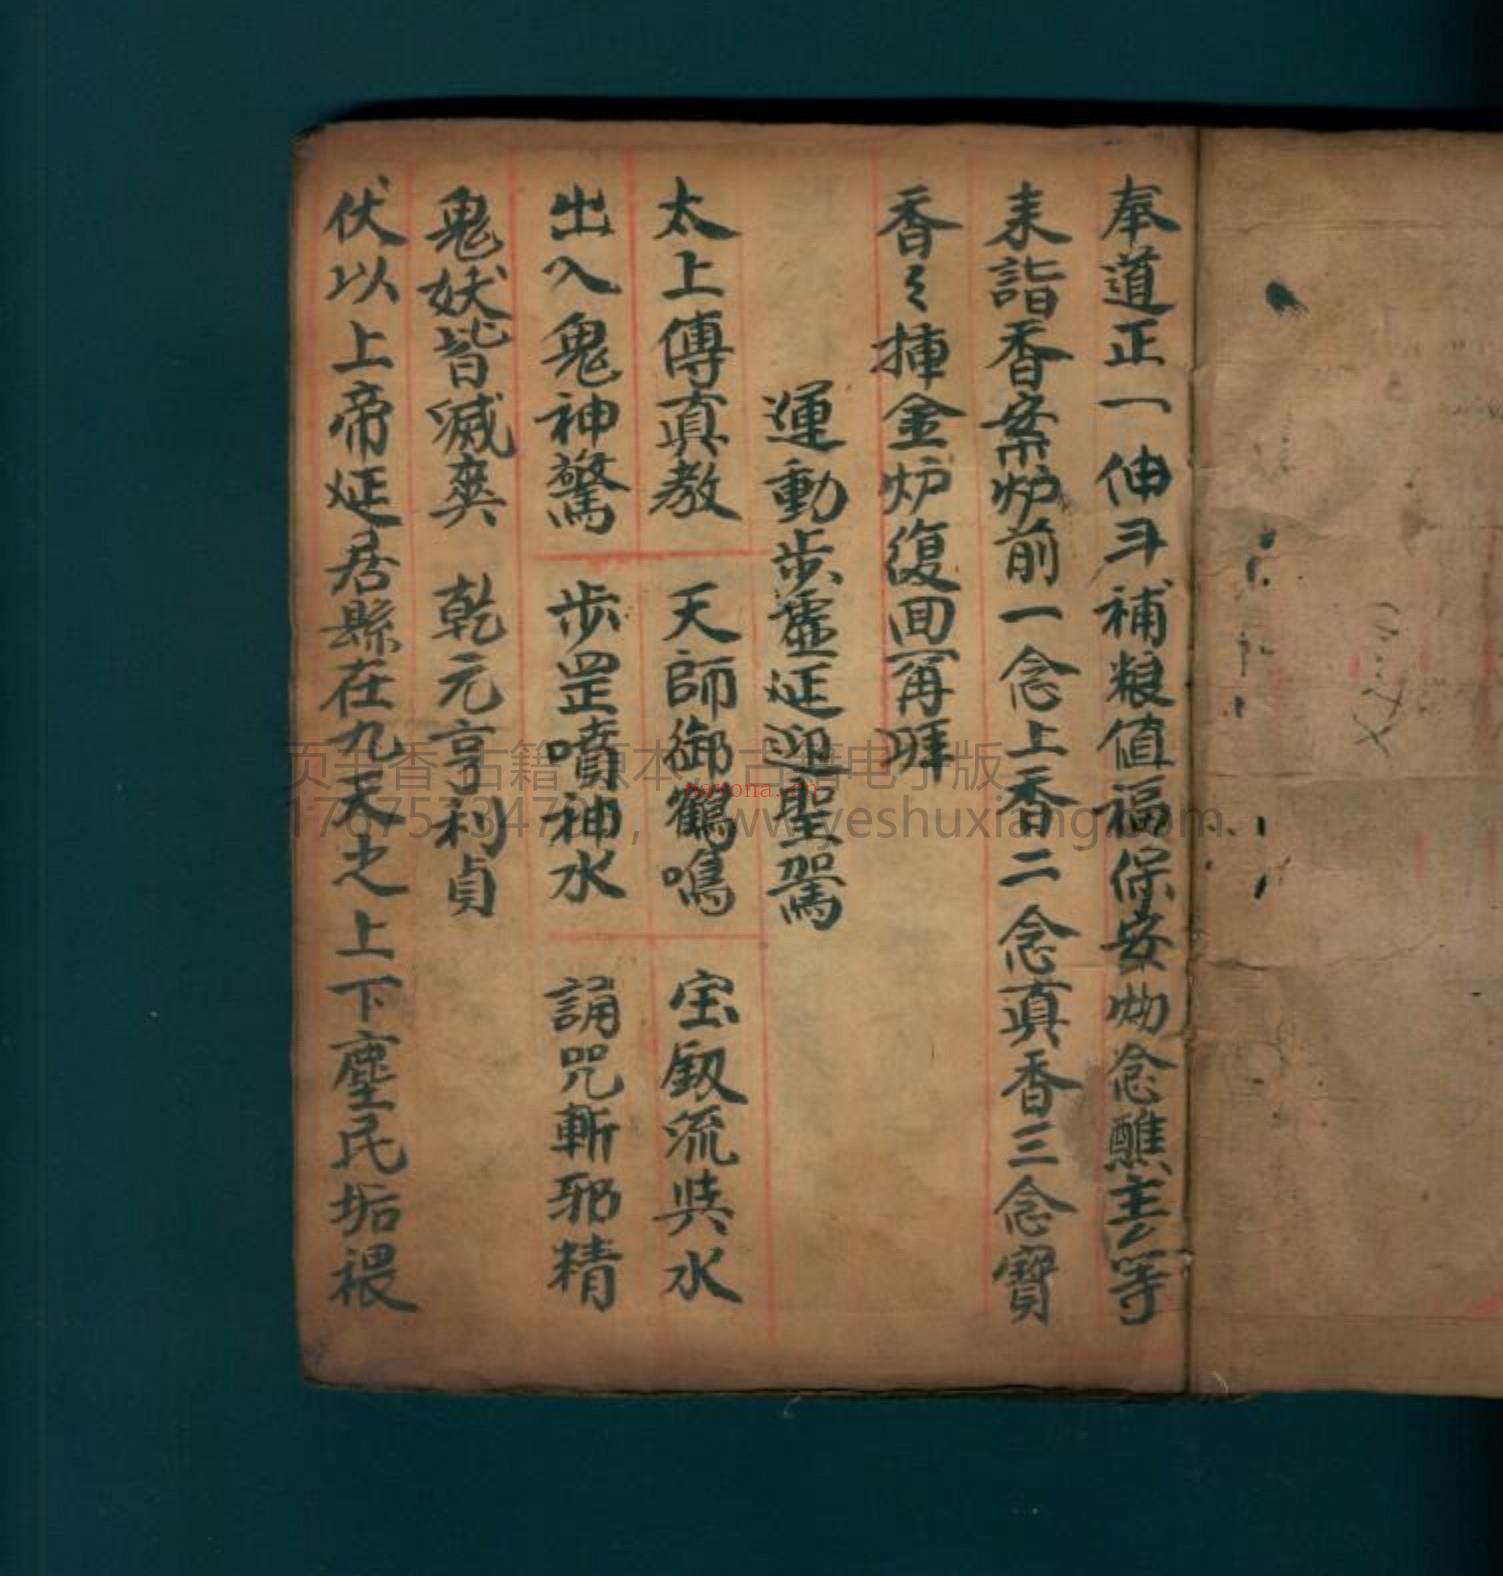 奉道正一伸斗補粮值福保安炉念醮主厶等
耒詣香案炉前一念上香二念真香三念寶
香〻揷金炉復回再拜
運動步虛延迎聖駕
太上傳真教 天師御鶴鳴 宝釼流㳒水
出入鬼神驚 步罡噴神水 誦咒斬邪精
鬼妖皆滅爽 乾元亨利貞
伏以上帝延居縣在九天之上下塵民垢
页 香古籍 原本 古籍电子版
yayona.cn
www.yeshuxiang.com